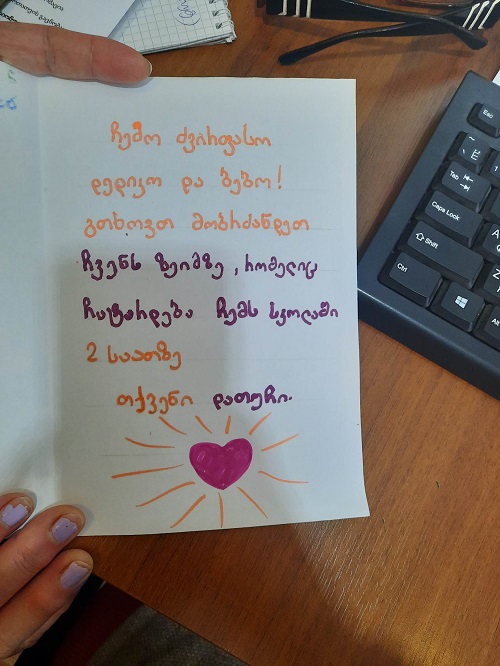 ჩემო ძვირფასო
დედიკო და ბებო!
გთხოვთ მობრძანდეთ
ჩვენს ზეიმზე, რომელიც
ჩატარდება ჩემს სკოლაში
2 საათზე
თქვენი დათუჩი.
Esc
Tab
Caps Lock
Shift
Ctrl
Alt